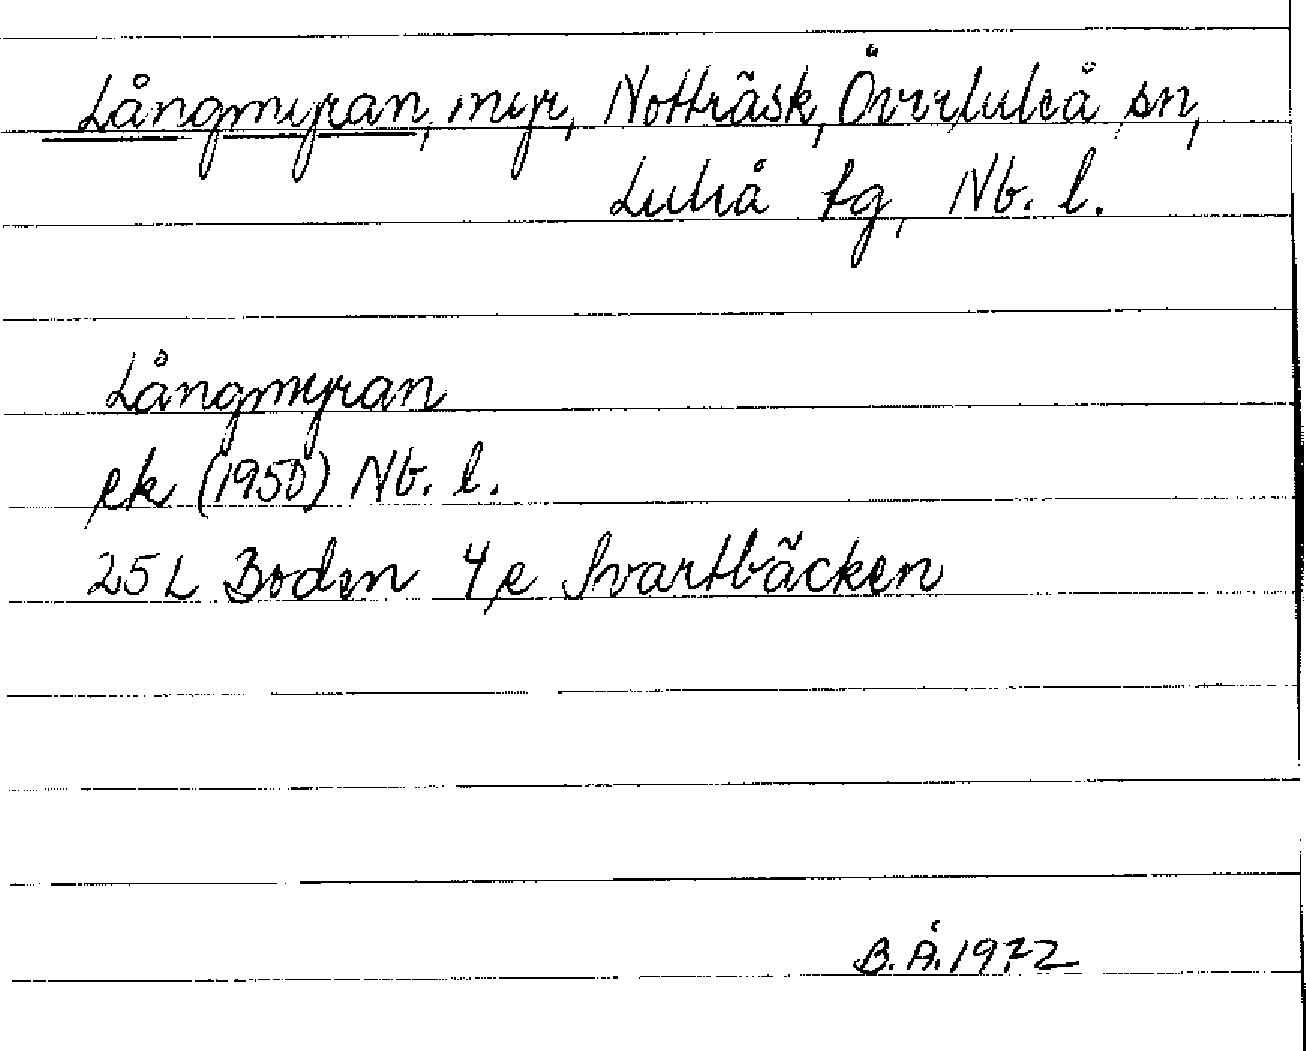 Långmyran, myr, Notträsk, Överluleå sn,
Luleå tg, Nb. l.
Långmyran
ek (1950) Nb. l.
25 L Boden 4, e Svartbäcken
B. Å. 1972